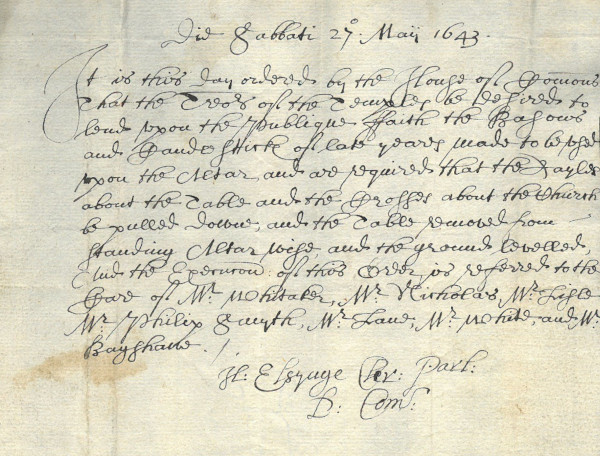 Die Sabbati 27º Maij 1643.
It is this day ordered by the House of Comons
That the Treōrs of the Temples be desired to
lend upon the Publique Faith the Basons
and Candlestick of late yeares made to be used
upon the Altar, and are required that the Rayles
about the Table and the Crosses about the Church
be pulled downe, and the Table removed from
standing Altar wise, and the ground levelled,
And the Execucon of this Order is referred to the
Care of Mr. Whitaker, Mr. Nicholas, Mr. Lisle
Mr. Philip Smyth, Mr. Lane, Mr. White, and Mr.
Bagshawe.
H: Elsynge Cler: Parl:
D: Com: